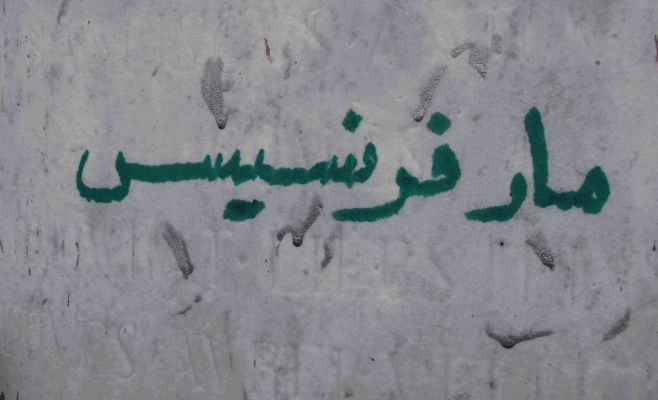 مار فرنسيس